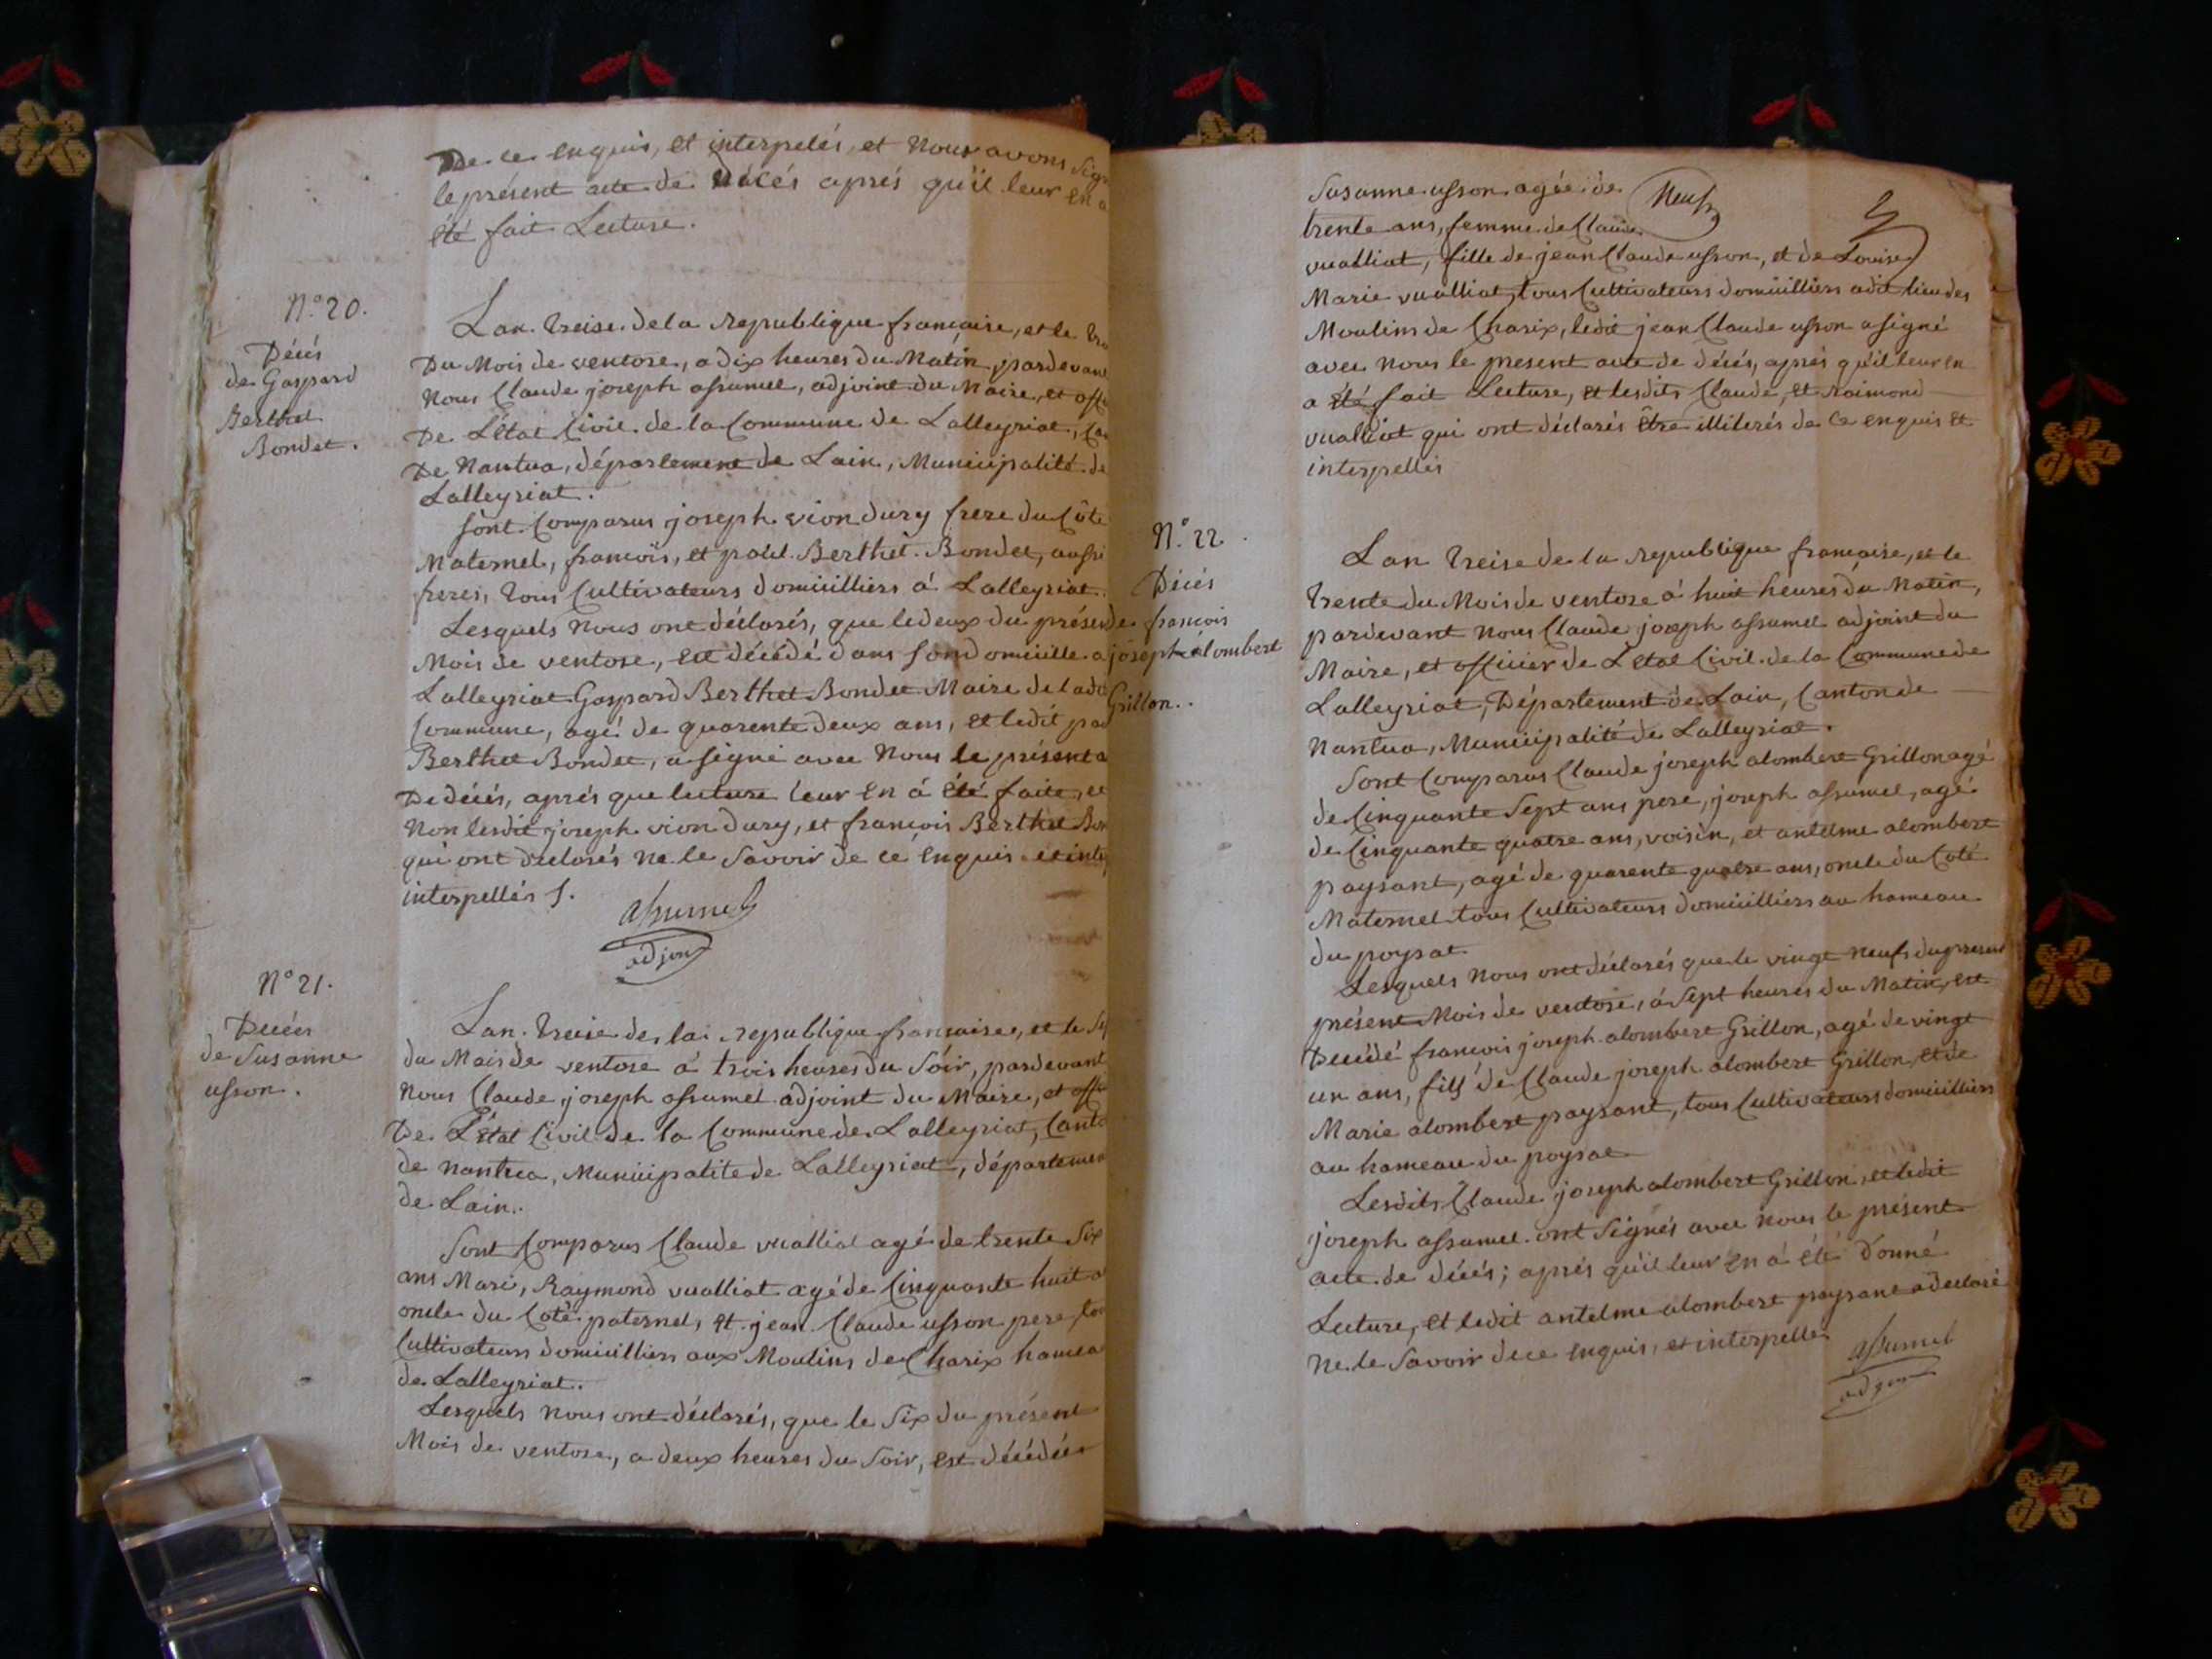 De ce enquis, et interpelés, et Nous avons sign
le présent acte de décés aprés qu'il leur en a
été fait Lecture.
N.o 20.
Décés
de Gaspard
Berthet
Bondet.
Lan treise de la republique francaise, et le tre
Du Mois de ventose, a dix heures du Matin, pardevant
Nous Claude joseph assumel, adjoint du Maire, et offi
De L'état Civil de la Commune de Lalleyriat, Can
De Nantua, département de Lain, Municipalité de
Lalleyriat.
Sont Comparus joseph viondury frere du Côte
Maternel, francois, et paul Berthet Bondet, aussi
freres, tous Cultivateurs domicilliers á Lalleyriat.
Lesquels Nous ont déclarés, que le deux du présen
Mois de ventose, est décédé dans Son domicille a
Lalleyriat Gaspard Berthet Bondet Maire de lad
Commune, agé de quarente deux ans, et ledit pa
Berthet Bondet, a signé avec Nous le présent a
De décés, aprés que lecture leur en á été faite, et
Non lesdit joseph vion dury, et francois Berthet Bon
qui ont déclarés ne le Savoir de ce enquis et inte
interpellés s.
assumel
adjoin
N.o 21.
Decés
de Susanne
usson.
Lan treise de la republique francaise, et le Se
du Mois de ventose á trois heures du Soir, pardevant
Nous Claude joseph assumel adjoint du Maire, et offi
De L'état Civil de la Commune de Lalleyriat, Canto
de nantua, Municipalité de Lalleyriat, départemen
de Lain.
Sont Comparus Claude vualliat agé de trente Six
ans Mari, Raymond vualliat agé de Cinquante huit a
oncle du Coté paternel, et jean Claude usson pere, tou
Cultivateurs domicilliers aux Moulins de Charix hamea
de Lalleyriat.
Lesquels Nous ont déclarés, que le Six du présent
Mois de ventose, a deux heures du Soir, est décédée
Susanne usson agée de Neufs
trente ans, femme de Claude
vualliat, fille de jean Claude usson, et de Louise
Marie vualliat, tous Cultivateurs domicilliers adit lieu des
Moulins de Charix, ledit jean Claude usson a signé
avec Nous le present acte de décés, aprés qu'il leur en
a été fait Lecture, et lesdits Claude, et Raimond
vualliat qui ont déclarés être illiterés de ce enquis et
interpellés
N.o 22.
Décés
de francois
joseph alombert
Grillon.
Lan treise de la republique francaise, et le
trente du Mois de ventose á huit heures du Matin,
pardevant Nous Claude joseph assumel adjoint du
Maire, et officier de L'état Civil de la Commune de
Lalleyriat, Département de Lain, Canton de
Nantua, Municipalité de Lalleyriat.
Sont Comparus Claude joseph alombert Grillon agé
de Cinquante Sept ans pere, joseph assumel, agé
de Cinquante quatre ans, voisin, et antelme alombert
paysant, agé de quarente quatre ans, oncle du Coté
Maternel tous Cultivateurs domicilliers au hameau
du poysat
Lesquels Nous ont déclarés que le vingt neufs du present
présent Mois de ventose, á Sept heures du Matin, est
Décédé francois joseph alombert Grillon, agé de vingt
un ans, fils de Claude joseph alombert Grillon, et de
Marie alombert paysant, tous Cultivateurs domicilliers
au hameau du poysat
Lesdits Claude joseph alombert Grillon, et ledit
joseph assumel ont Signés avec Nous le présent
acte de décés; aprés qu'il leur en á été donné
Lecture, et ledit antelme alombert paysant a déclaré
Ne le Savoir de ce enquis, et interpellé
assumel
adjoin